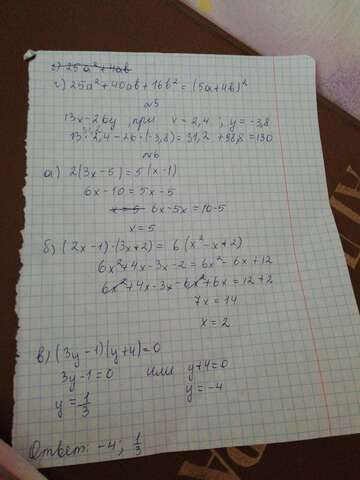 г) 25a²+4ab
г) 25a²+40ab+16b² = (5a+4b)²
№5
13x-26y, при x = 2,4 ; y = -3,8
13·2,4 - 26·(-3,8) = 31,2 + 98,8 = 130
№6
а) 2(3x-5) = 5(x-1)
6x-10 = 5x-5
x=5 6x-5x = 10-5
x = 5
б) (2x-1)·(3x+2) = 6(x²-x+2)
6x²+4x-3x-2 = 6x²-6x+12
6x²+4x-3x-6x²+6x = 12+2
7x = 14
x = 2
в) (3y-1)(y+4) = 0
3y-1=0 или y+4=0
y = 1/3 y = -4
Ответ: -4; 1/3